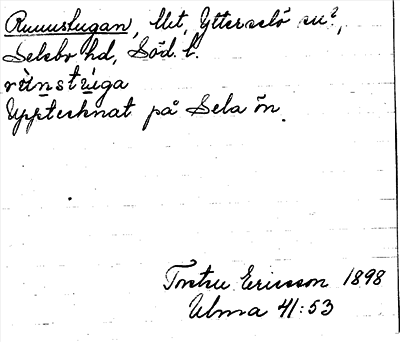 Runnstugan, Ult, Ytterselö sn?,
Selebo hd, Söd. l.
rùnstùga
Upptecknat på Selaön.
Torsten Ericsson 1898
Ulma 41:53